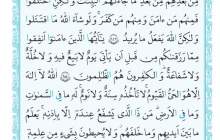 مِنْ بَعْدِهِمْ مِنْ بَعْدِ مَا جَآءَتْهُمُ الْبَيِّنٰتُ وَلٰكِنِ اخْتَلَفُوْا
فَمِنْهُمْ مَنْ اٰمَنَ وَمِنْهُمْ مَنْ كَفَرَ وَلَوْ شَآءَ اللّٰهُ مَا اقْتَتَلُوْا
وَلٰكِنَّ اللّٰهَ يَفْعَلُ مَا يُرِيْدُ يٰٓاَيُّهَا الَّذِيْنَ اٰمَنُوْٓا اَنْفِقُوْا
مِمَّا رَزَقْنٰكُمْ مِنْ قَبْلِ اَنْ يَاْتِيَ يَوْمٌ لَا بَيْعٌ فِيْهِ وَلَا خُلَّةٌ
وَلَا شَفَاعَةٌ وَالْكٰفِرُوْنَ هُمُ الظّٰلِمُوْنَ اَللّٰهُ لَآ اِلٰهَ
اِلَّا هُوَ اَلْحَيُّ الْقَيُّوْمُ لَا تَاْخُذُهُ سِنَةٌ وَلَا نَوْمٌ لَهُ مَا فِي السَّمٰوٰتِ
وَمَا فِي الْاَرْضِ مَنْ ذَا الَّذِيْ يَشْفَعُ عِنْدَهُ اِلَّا بِاِذْنِهِ يَعْلَمُ
مَا بَيْنَ اَيْدِيْهِمْ وَمَا خَلْفَهُمْ وَلَا يُحِيْطُوْنَ بِشَيْءٍ مِنْ عِلْمِهِ